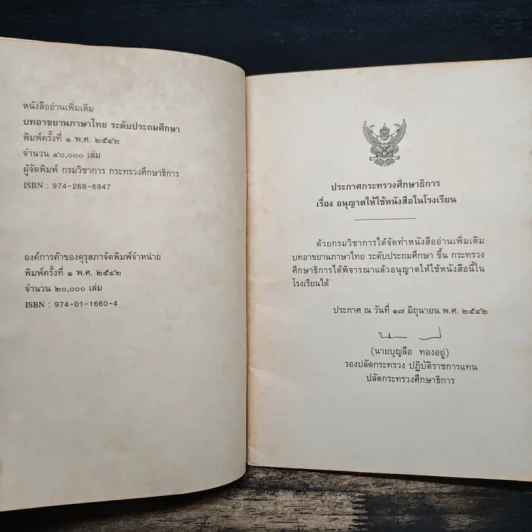 หนังสืออ่านเพิ่มเติม
บทอาขยานภาษาไทย ระดับประถมศึกษา
พิมพ์ครั้งที่ ๑ พ.ศ. ๒๕๔๒
จำนวน ๔๐,๐๐๐ เล่ม
ผู้จัดพิมพ์ กรมวิชาการ กระทรวงศึกษาธิการ
ISBN : 974-268-6947
องค์การค้าของคุรุสภาจัดพิมพ์จำหน่าย
พิมพ์ครั้งที่ ๑ พ.ศ. ๒๕๔๒
จำนวน ๒๐,๐๐๐ เล่ม
ISBN : 974-01-1660-4
ประกาศกระทรวงศึกษาธิการ
เรื่อง อนุญาตให้ใช้หนังสือในโรงเรียน
ด้วยกรมวิชาการได้จัดทำหนังสืออ่านเพิ่มเติม
บทอาขยานภาษาไทย ระดับประถมศึกษา ขึ้น กระทรวง
ศึกษาธิการได้พิจารณาแล้วอนุญาตให้ใช้หนังสือนี้ใน
โรงเรียนได้
ประกาศ ณ วันที่ ๑๗ มิถุนายน พ.ศ. ๒๕๔๒
(นายบุญลือ ทองอยู่)
รองปลัดกระทรวง ปฏิบัติราชการแทน
ปลัดกระทรวงศึกษาธิการ